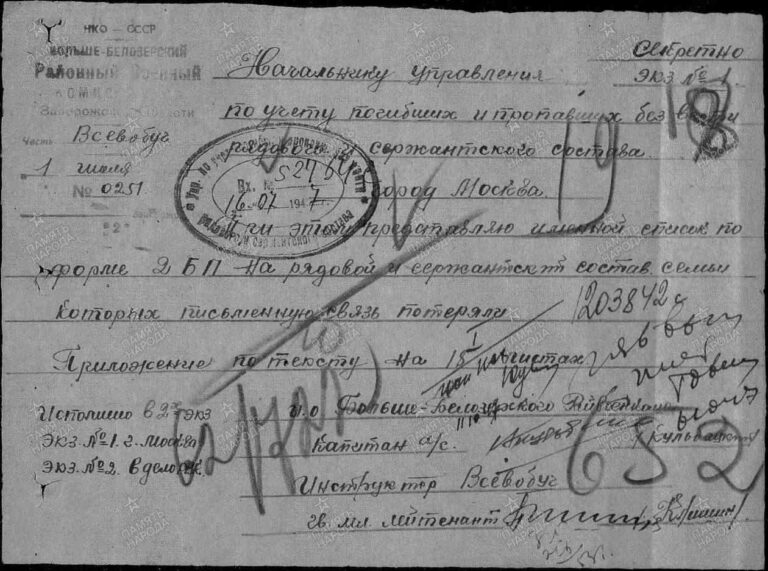 НКО — СССР
БОЛЬШЕ-БЕЛОЗЕРСКИЙ
Районный Военный
Запорожской области
Часть Всевобуч
1 июля
№ 0251
"2"
Секретно
экз. № 1.
Начальнику управления
по учету погибших и пропавших без вести
рядового сержантского состава
город Москва.
Вх. № 5276
16-07 194 7
При этом представляю именной список по
форме 2 БП на рядовой и сержантский состав, семьи
которых письменную связь потеряли
1203842
Приложение по тексту на 15 листах
19
186
62/725
652
Исполнено в 2х экз
Экз. № 1. г. Москва
Экз. № 2. в дело
и.о Больше-Белозерского Райвоенкома
Капитан а/с.
Инструктор Всевобуч
гв. мл. лейтенант
ПАМЯТЬ НАРОДА